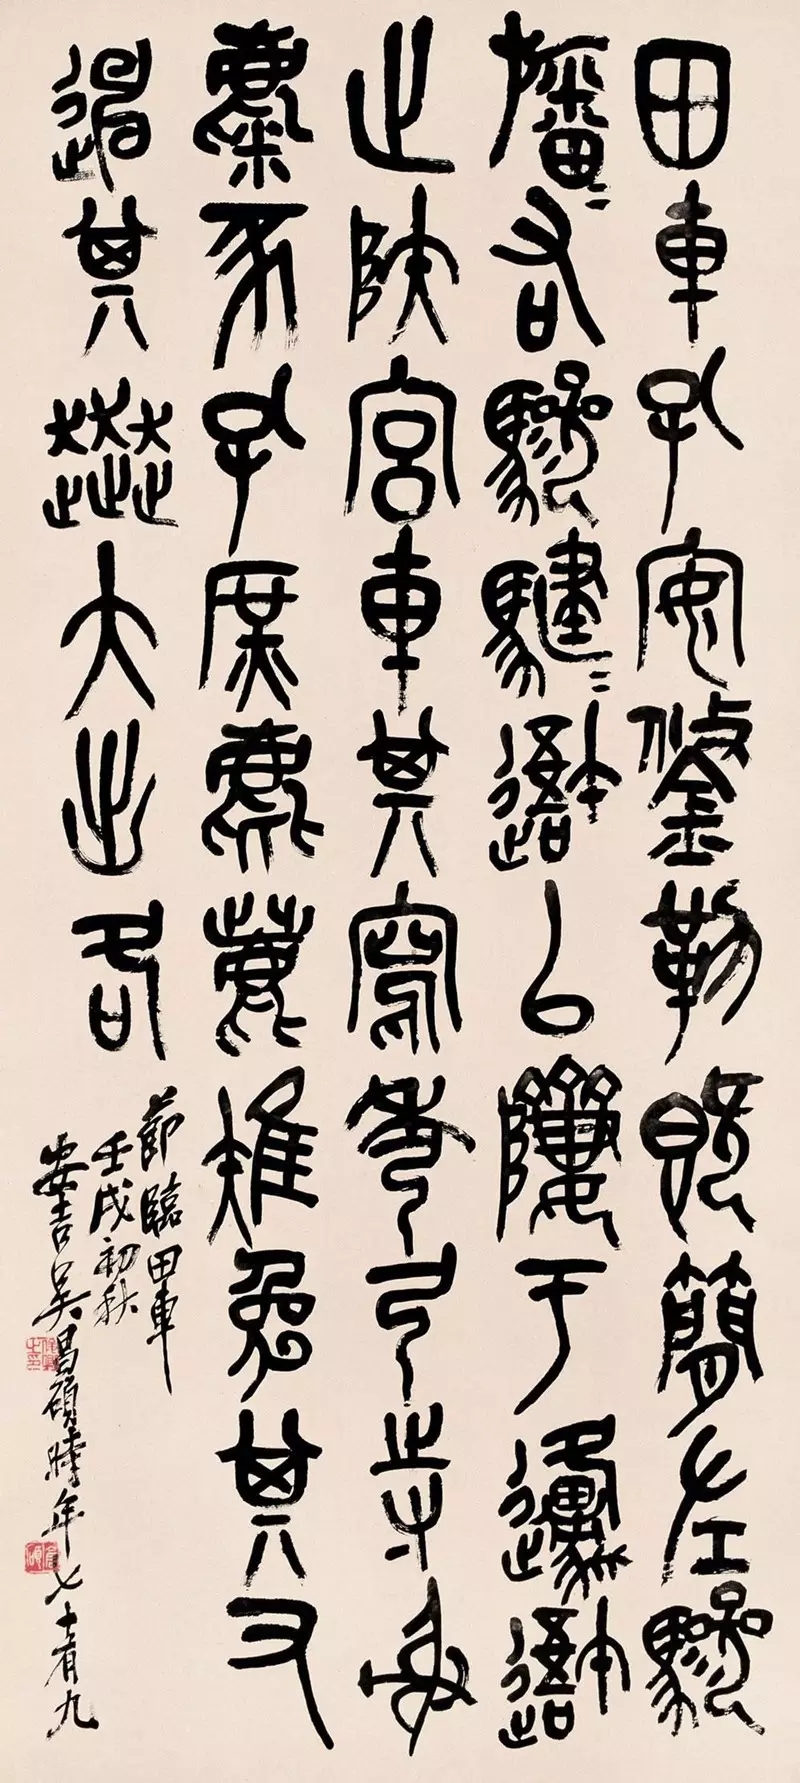 田車孔安鋚勒既簡左驂
旛〻右驂騝〻以隮于邍
止陜宮車其寫秀弓寺射
麋豕孔庶麀鹿雉兔其又
其奔大出各
節臨田車
壬戌初秋
安吉吳昌碩時年七十有九
俊卿之印
倉碩